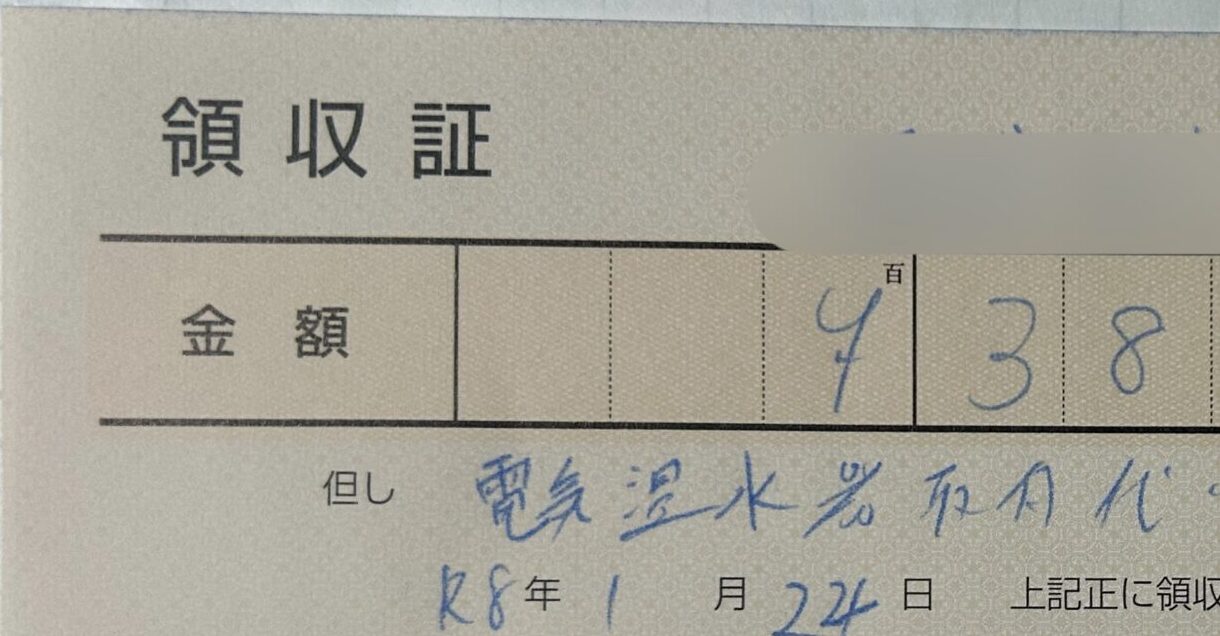 領収証
金額 百 ¥38
但し 電気温水器取付代
R8年1月24日 上記正に領収